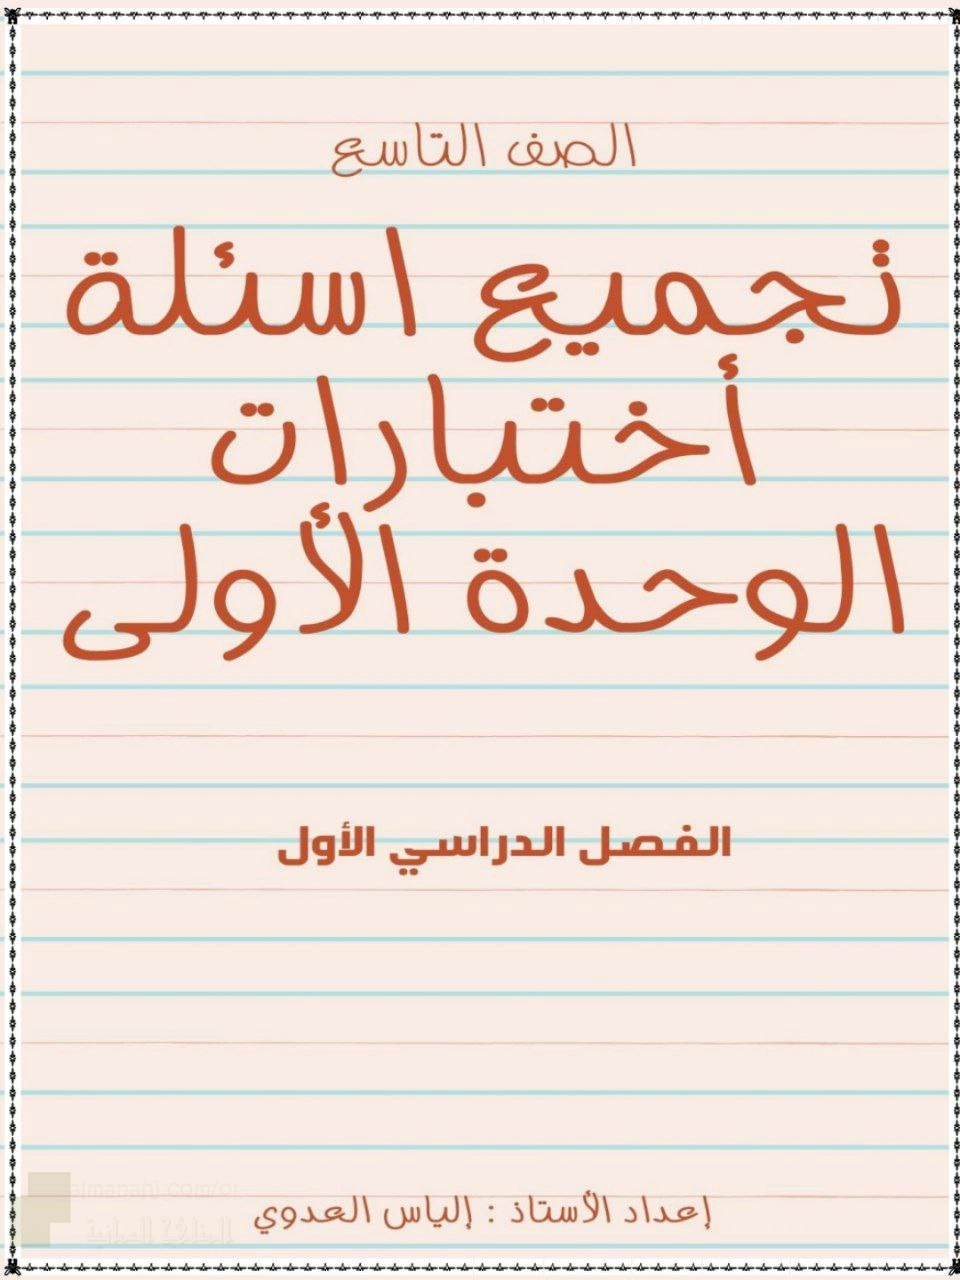 الصف التاسع
تجميع اسئلة
أختبارات
الوحدة الأولى
الفصل الدراسي الأول
almanahj.com/o
إعداد الأستاذ : إلياس العدوي
المناهج العمانية